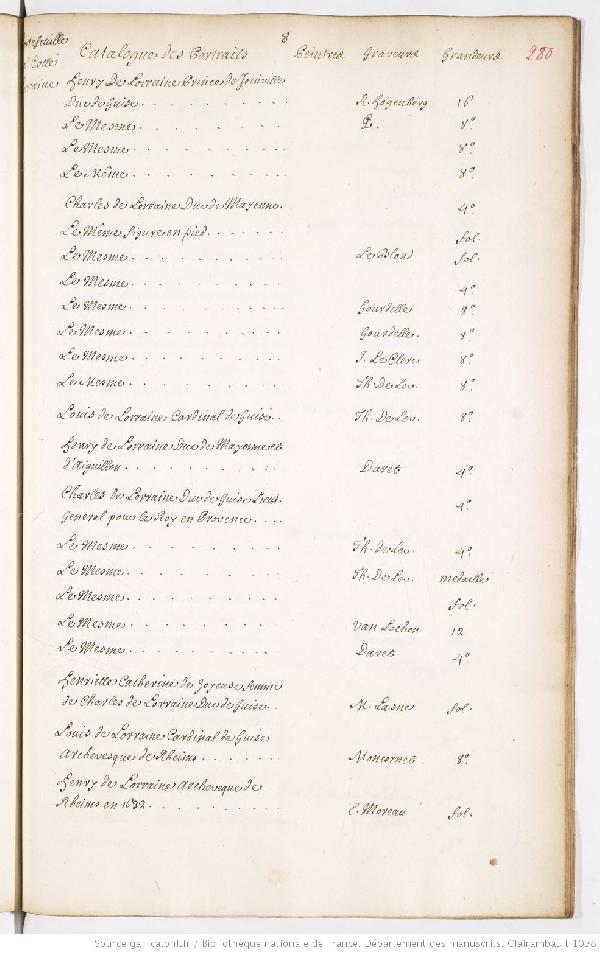 8
Catalogue des Portraits Peintres Graveurs Grandeurs 280
Henry De Lorraine Prince de Joinville
Duc de Guise . . . . . . . . . R. Hogenberg 16
Le Mesme . . . . . . . . . 8°
Le Mesme . . . . . . . . . 8°
Le Même . . . . . . . . . 8°
Charles de Lorraine Duc de Mayenne. 4°
Le Même figure en pied . . . . . fol.
Le Mesme . . . . . . . . . Le Blond fol.
Le Mesme . . . . . . . . . 4°
Le Mesme . . . . . . . . . Gourdelle 8°
Le Mesme . . . . . . . . . Gourdelle. 8°
Le Mesme . . . . . . . . . J. Le Clerc 8°
Le Mesme . . . . . . . . . Th. De Leu. 8°
Louis de Lorraine Cardinal de Guise . . Th. De Leu. 8°
Henry de Lorraine Duc de Mayenne et
d'Aiguillon . . . . . . . . . Daret 4°
Charles de Lorraine Duc de Guise Lieut.
General pour le Roy en Provence . . . 4°
Le Mesme . . . . . . . . . Th. de Leu. 4°
Le Mesme . . . . . . . . . Th. De Leu. medaille
Le Mesme . . . . . . . . . fol.
Le Mesme . . . . . . . . . Van Lochon 12
Le Mesme . . . . . . . . . Daret 4°
Henriette Catherine de Joyeuse femme
de Charles de Lorraine Duc de Guise . . M. Lasne fol.
Louis de Lorraine Cardinal de Guise
Archevesque de Rheims . . . . . . Moncornet 8°
Henry de Lorraine Archeveque de
Rheims en 1632 . . . . . . . . . E. Moreau fol.
Source gallica.bnf.fr / Bibliothèque nationale de France. Département des manuscrits. Clairambault 1038